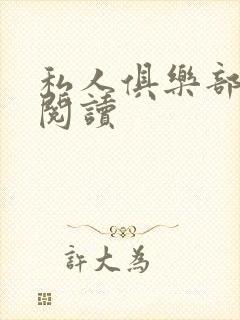 私人俱樂部
閱讀
許大為